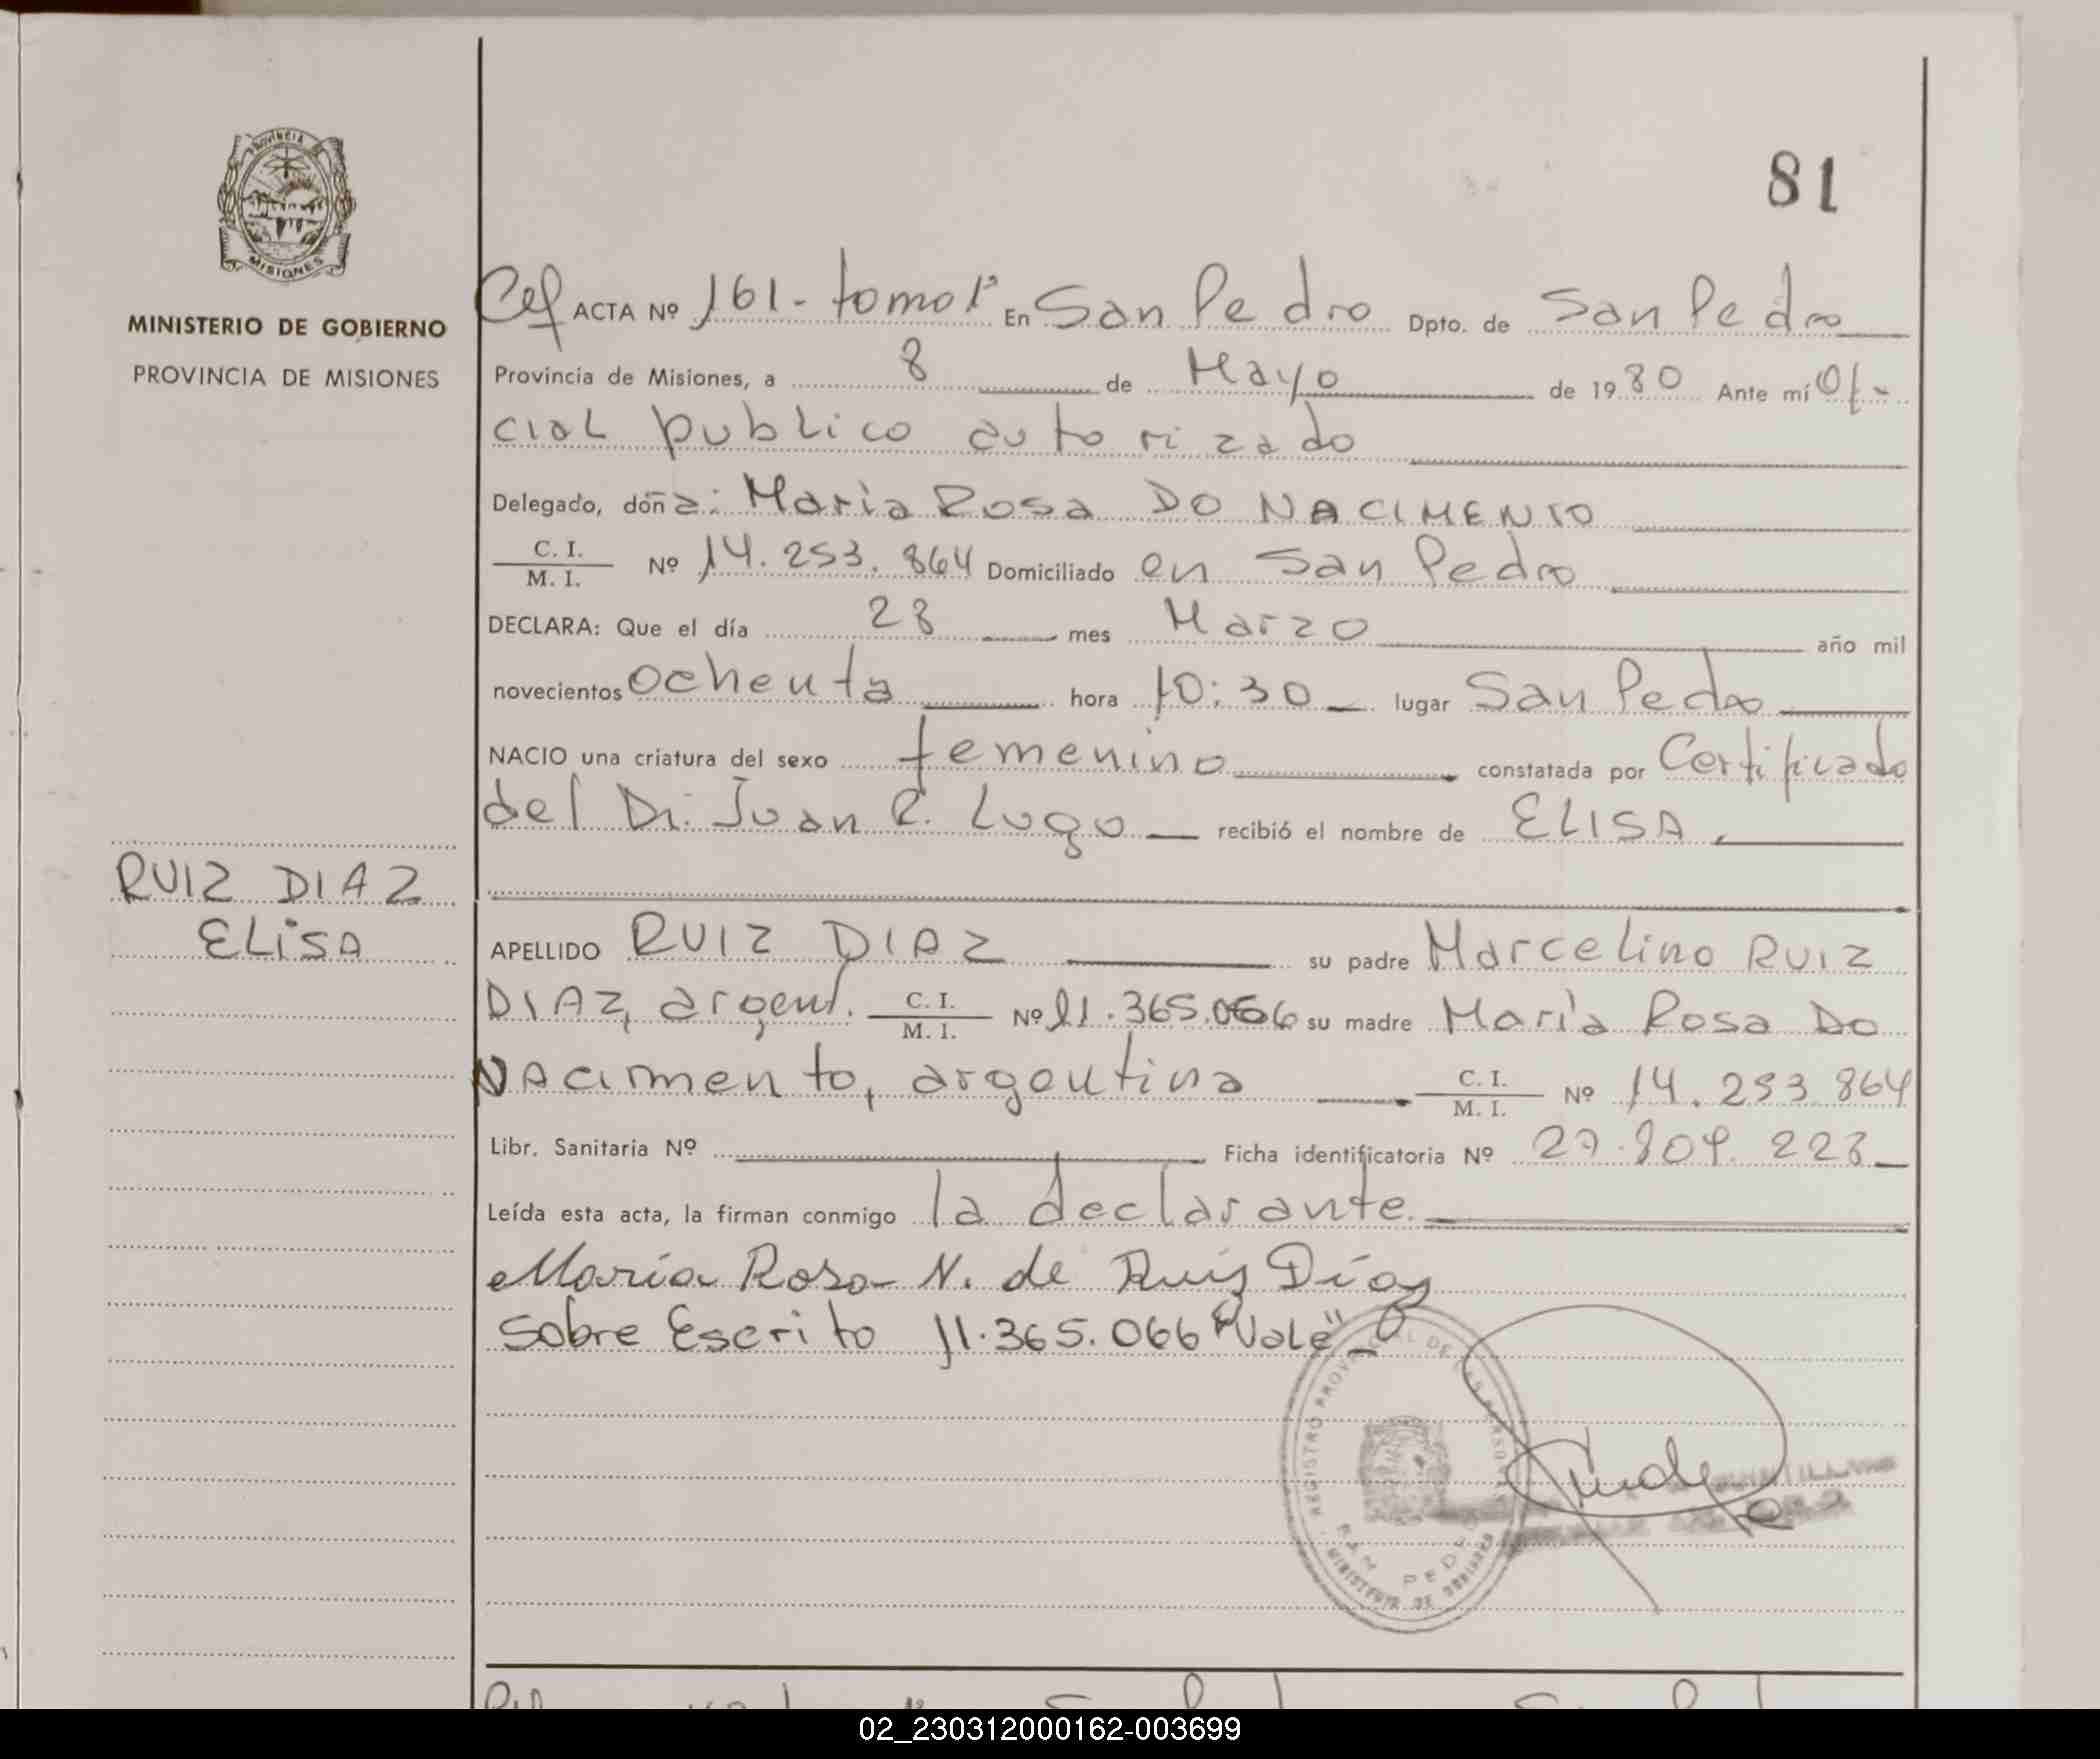 81
PROVINCIA
MISIONES
MINISTERIO DE GOBIERNO
PROVINCIA DE MISIONES
RUIZ DIAZ
ELISA
ACTA Nº 161 - tomo 1º En San Pedro Dpto. de San Pedro
Provincia de Misiones, a 8 de Mayo de 1980 Ante mí Ofi-
cial publico autorizado
Delegado, doña: Maria Rosa DO NACIMENTO
C. I. / M. I. Nº 14.253.864 Domiciliado en San Pedro
DECLARA: Que el día 28 mes Marzo año mil
novecientos ochenta hora 10:30 lugar San Pedro
NACIO una criatura del sexo femenino constatada por Certificado
del Dr. Juan R. Lugo recibió el nombre de ELISA.
APELLIDO RUIZ DIAZ su padre Marcelino RUIZ
DIAZ, argent. C. I. / M. I. Nº 11.365.066 su madre María Rosa Do
Nacimento, argentina C. I. / M. I. Nº 14.253.864
Libr. Sanitaria Nº Ficha identificatoria Nº 27.809.228
Leída esta acta, la firman conmigo la declarante.
María Rosa N. de Ruiz Díaz
Sobre Escrito 11.365.066 "Vale"
REGISTRO PROVINCIAL DE LAS PERSONAS
SAN PEDRO
MINISTERIO DE GOBIERNO
02_230312000162-003699